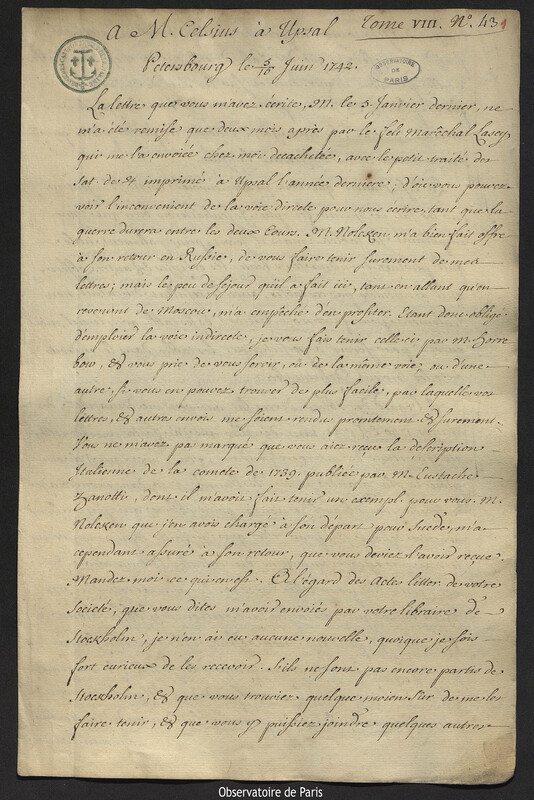 A M. Celsius à Upsal
Tome VIII. N°. 43
OBSERVATOIRE DE PARIS
Petersbourg le 5/16 Juin 1742.
La lettre que vous m'avez écrite, M. le 5 Janvier dernier, ne
m'a été remise que deux mois après par le feld Maréchal Lascy
qui me l'a envoiée chez moi decachetée, avec le petit traité des
Sat de ♃ imprimé à Upsal l'année derniere; d'où vous pouvez
voir l'inconvenient de la voie directe pour nous ecrire, tant que la
guerre durera entre les deux Cours. M. Nolcken m'a bien fait offre
à son retour en Russie, de vous faire tenir surement de mes
lettres; mais le peu de séjour qu'il a fait ici, tant en allant qu'en
revenant de Moscou, m'a empêché d'en profiter. Etant donc obligé
d'emploier la voie indirecte, je vous fais tenir celle ci par M. Horre
bow, & vous prie de vous servir, ou de la même voie, ou d'une
autre si vous en pouvez trouver de plus facile, par laquelle vos
lettres, & autres envois me soient rendus promtement & surement.
Vous ne m'avez pas marqué que vous aiez reçu la description
Italienne de la comete de 1739. publiée par M. Eustache
Zanotti, dont il m'avoit fait tenir un exempl. pour vous. M.
Nolcken que j'en avois chargé à son départ pour Suede, m'a
cependant assuré à son retour, que vous deviez l'avoir reçue.
Mandez moi ce qui en est. A l'égard des Actes litter. de votre
Societé, que vous dites m'avoir envoiés par votre libraire de
Stockholm, je n'en ai eu aucune nouvelle, quoique je sois
fort curieux de les recevoir. S'ils ne sont pas encore partis de
Stockholm, & que vous trouviez quelque moien sûr de me les
faire tenir, & que vous y puissiez joindre quelques autres
Observatoire de Paris